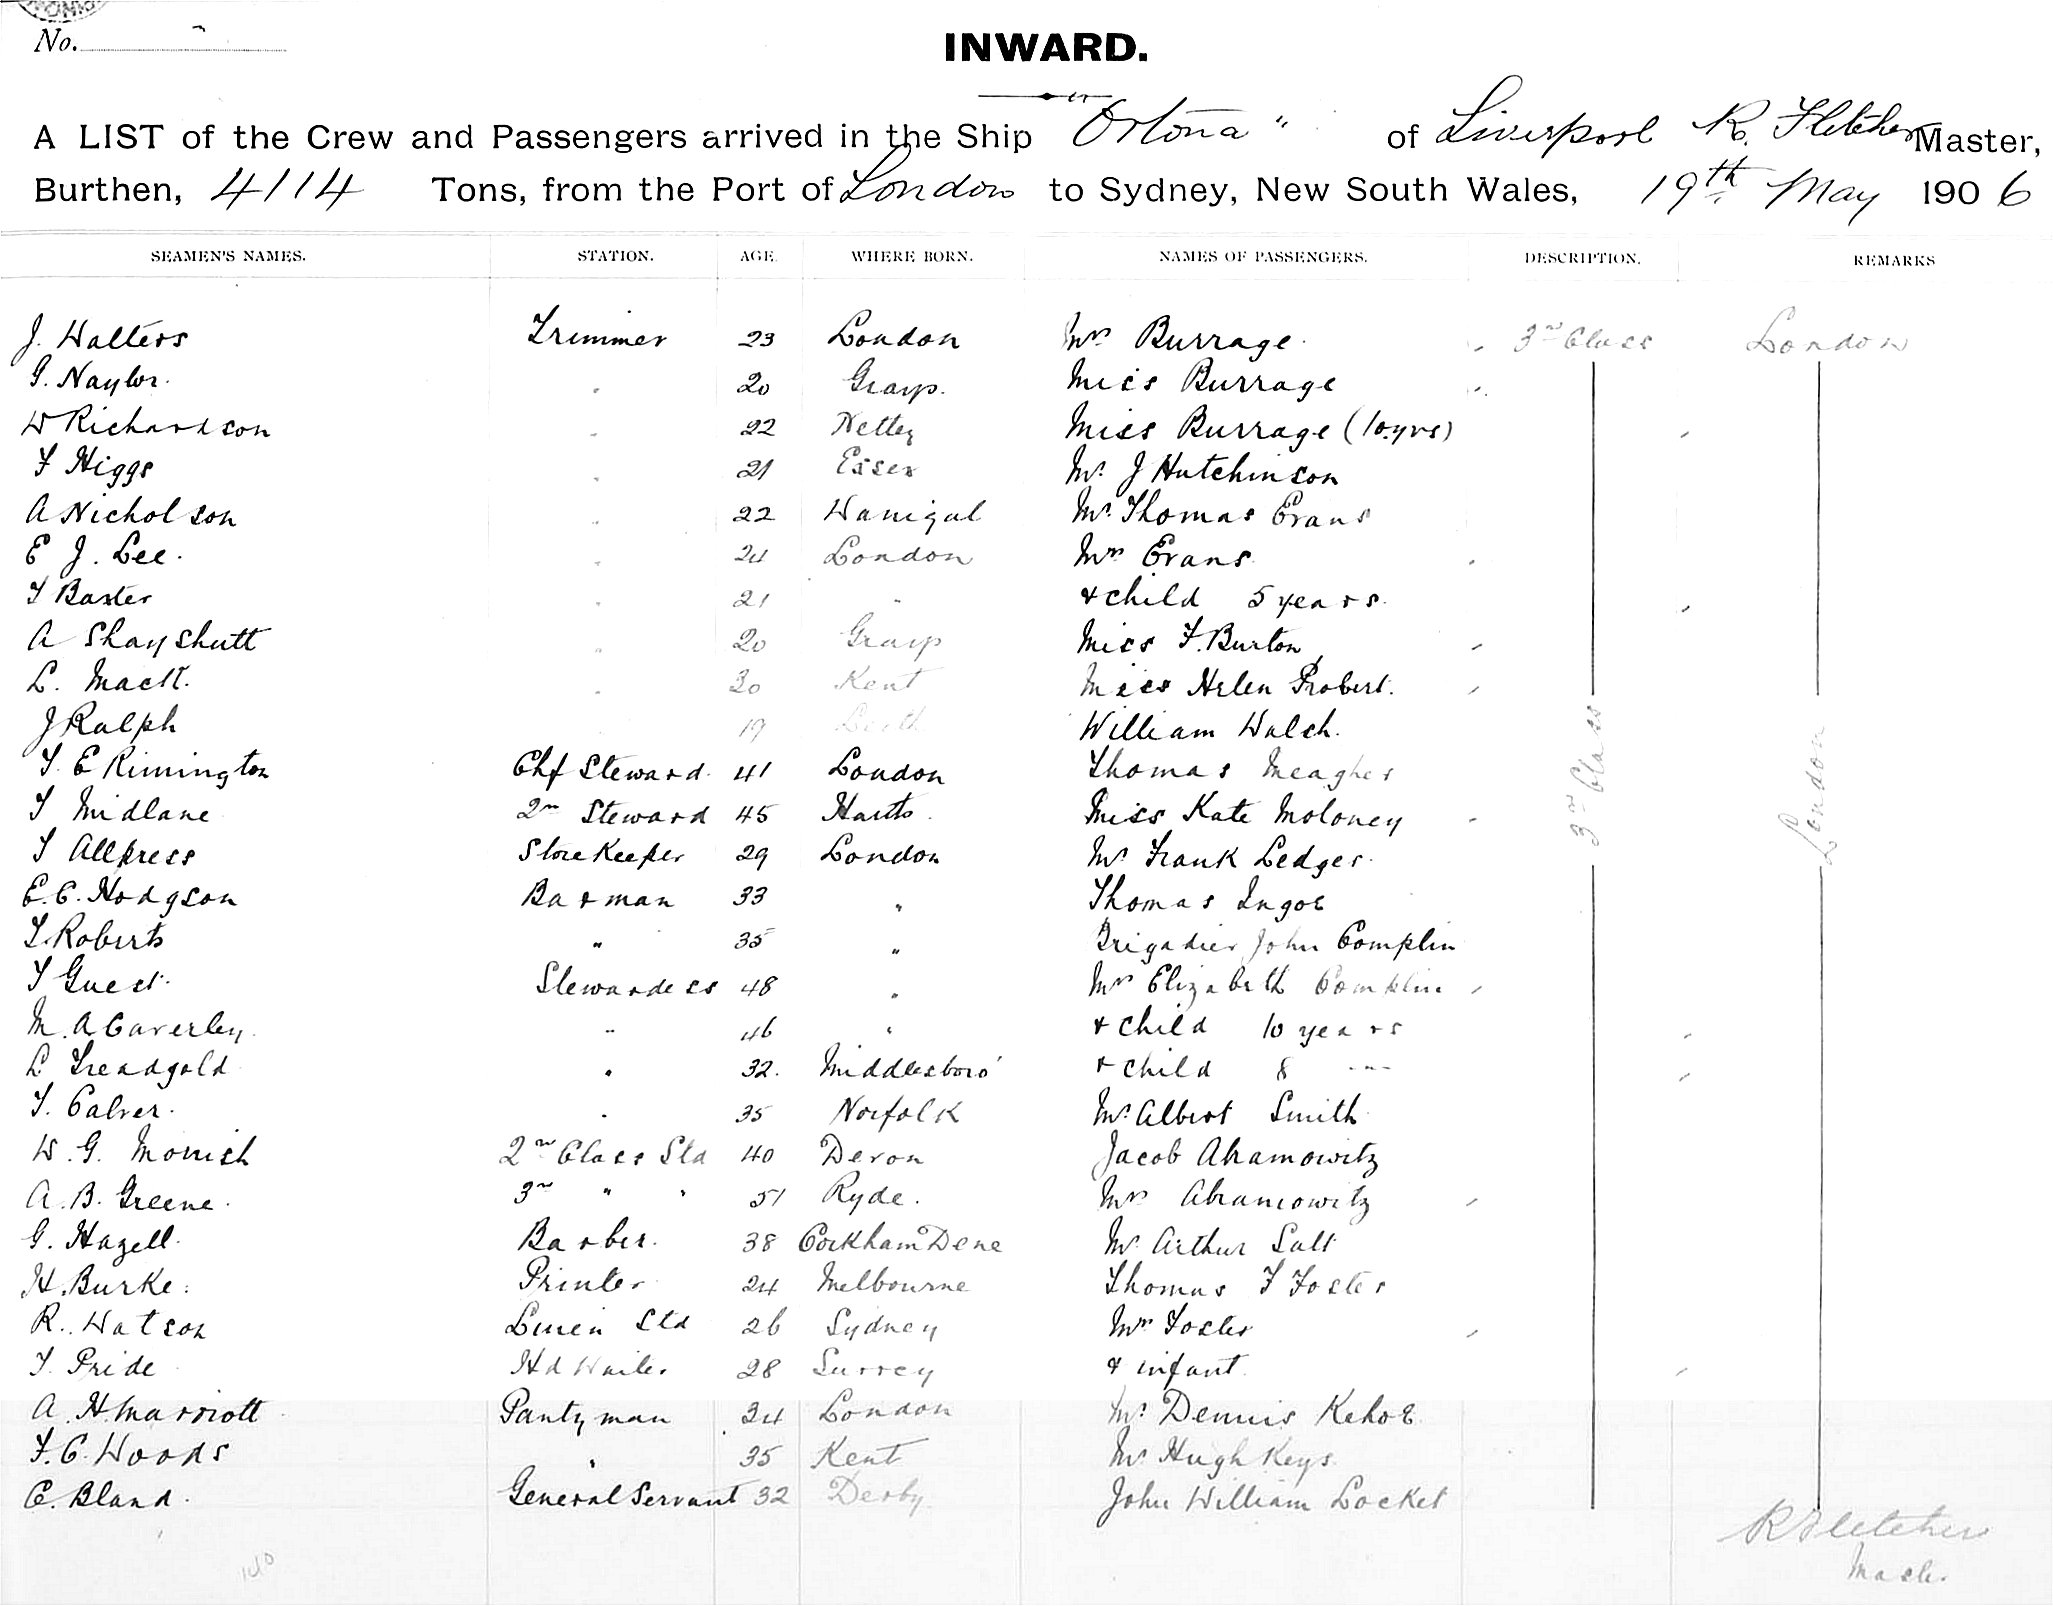 No.
INWARD.
A LIST of the Crew and Passengers arrived in the Ship "Ortona" of Liverpool R. Fletcher Master,
Burthen, 4114 Tons, from the Port of London to Sydney, New South Wales, 19th May 1906
SEAMEN'S NAMES. STATION. AGE. WHERE BORN. NAMES OF PASSENGERS. DESCRIPTION. REMARKS
J. Walters Trimmer 23 London Mrs Burrage 3rd Class London
G. Naylor. " 20 Grays. Miss Burrage
W Richardson " 22 Netley Miss Burrage (10 yrs)
F Higgs " 21 Essex Mr. J Hutchinson
A Nicholson " 22 Mr. Thomas Evans
E J. Lee. " 24 London Mrs Evans
T Baxter " 21 " & child 5 years.
A Shayshutt " 20 Grays Miss F. Burton
L. Mack. " 30 Kent Miss Helen Probert.
J Ralph 19 Leith William Walsh.
T. E Rimington Chf Steward. 41 London Thomas Meagher
T Midlane 2nd Steward 45 Hants. Miss Kate Moloney
T Allpress Storekeeper 29 London Mr Frank Ledger.
E. C. Hodgson Barman 33 " Thomas Ingoe
T. Roberts " 35 " Brigadier John Complin
T Guest. Stewardess 48 " Mrs Elizabeth Complin
M. A Caverley. " 46 " & child 10 years
L Treadgold " 32. Middlesboro' & child 8 "
T. Calver. " 35 Norfolk Mr. Albert Smith
W. G. Morrish 2nd Class Std 40 Devon Jacob Abramowitz
A. B. Greene. 3rd " " 51 Ryde. Mrs Abramowitz
G. Hazell. Barber. 38 Cockham Dene Mr Arthur Salt
H. Burke. Printer 24 Melbourne Thomas F Foster
R. Watson Linen Std 26 Sydney Mrs Foster
T. Pride Hd Waiter 28 Surrey & infant.
A. H. Marriott Pantryman 34 London Mr. Dennis Kehoe
F. C. Woods " 35 Kent Mr Hugh Keys.
C. Bland. General Servant 32 Derby. John William Locket
3rd Class
London
R Fletcher
Master